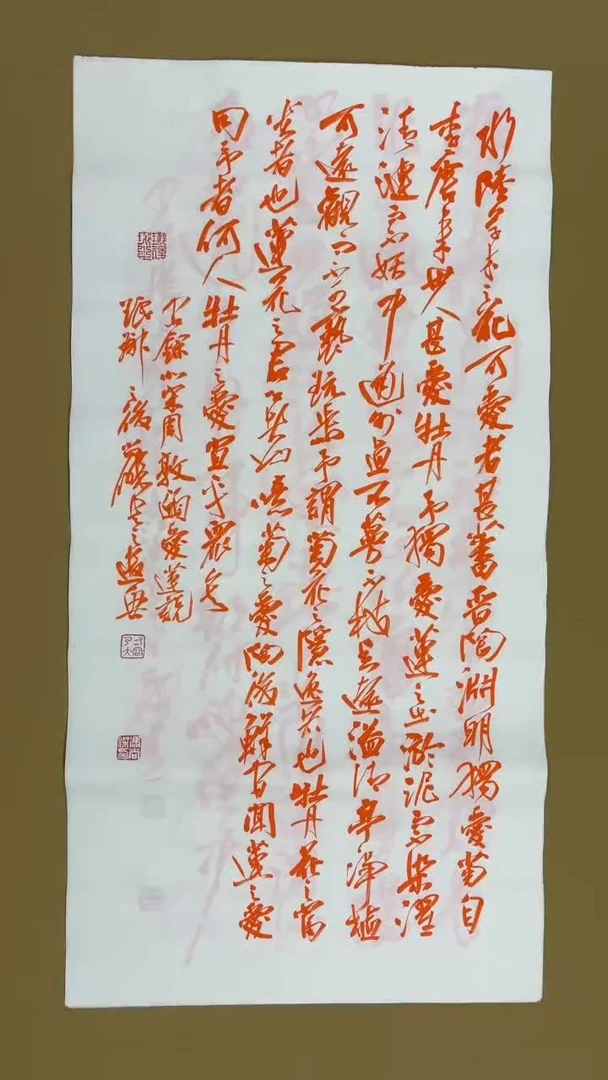 水陸草木之花可愛者甚蕃晋陶淵明獨愛菊自
李唐來世人甚愛牡丹予獨愛蓮之出淤泥而不染濯
清漣而不妖中通外直不蔓不枝香遠益清亭亭淨植
可遠觀而不可褻玩焉予謂菊花之隱逸者也牡丹花之富
貴者也蓮花之君子者也噫菊之愛陶後鮮有聞蓮之愛
同予者何人牡丹之愛宜乎衆矣
宋周敦頤愛蓮說